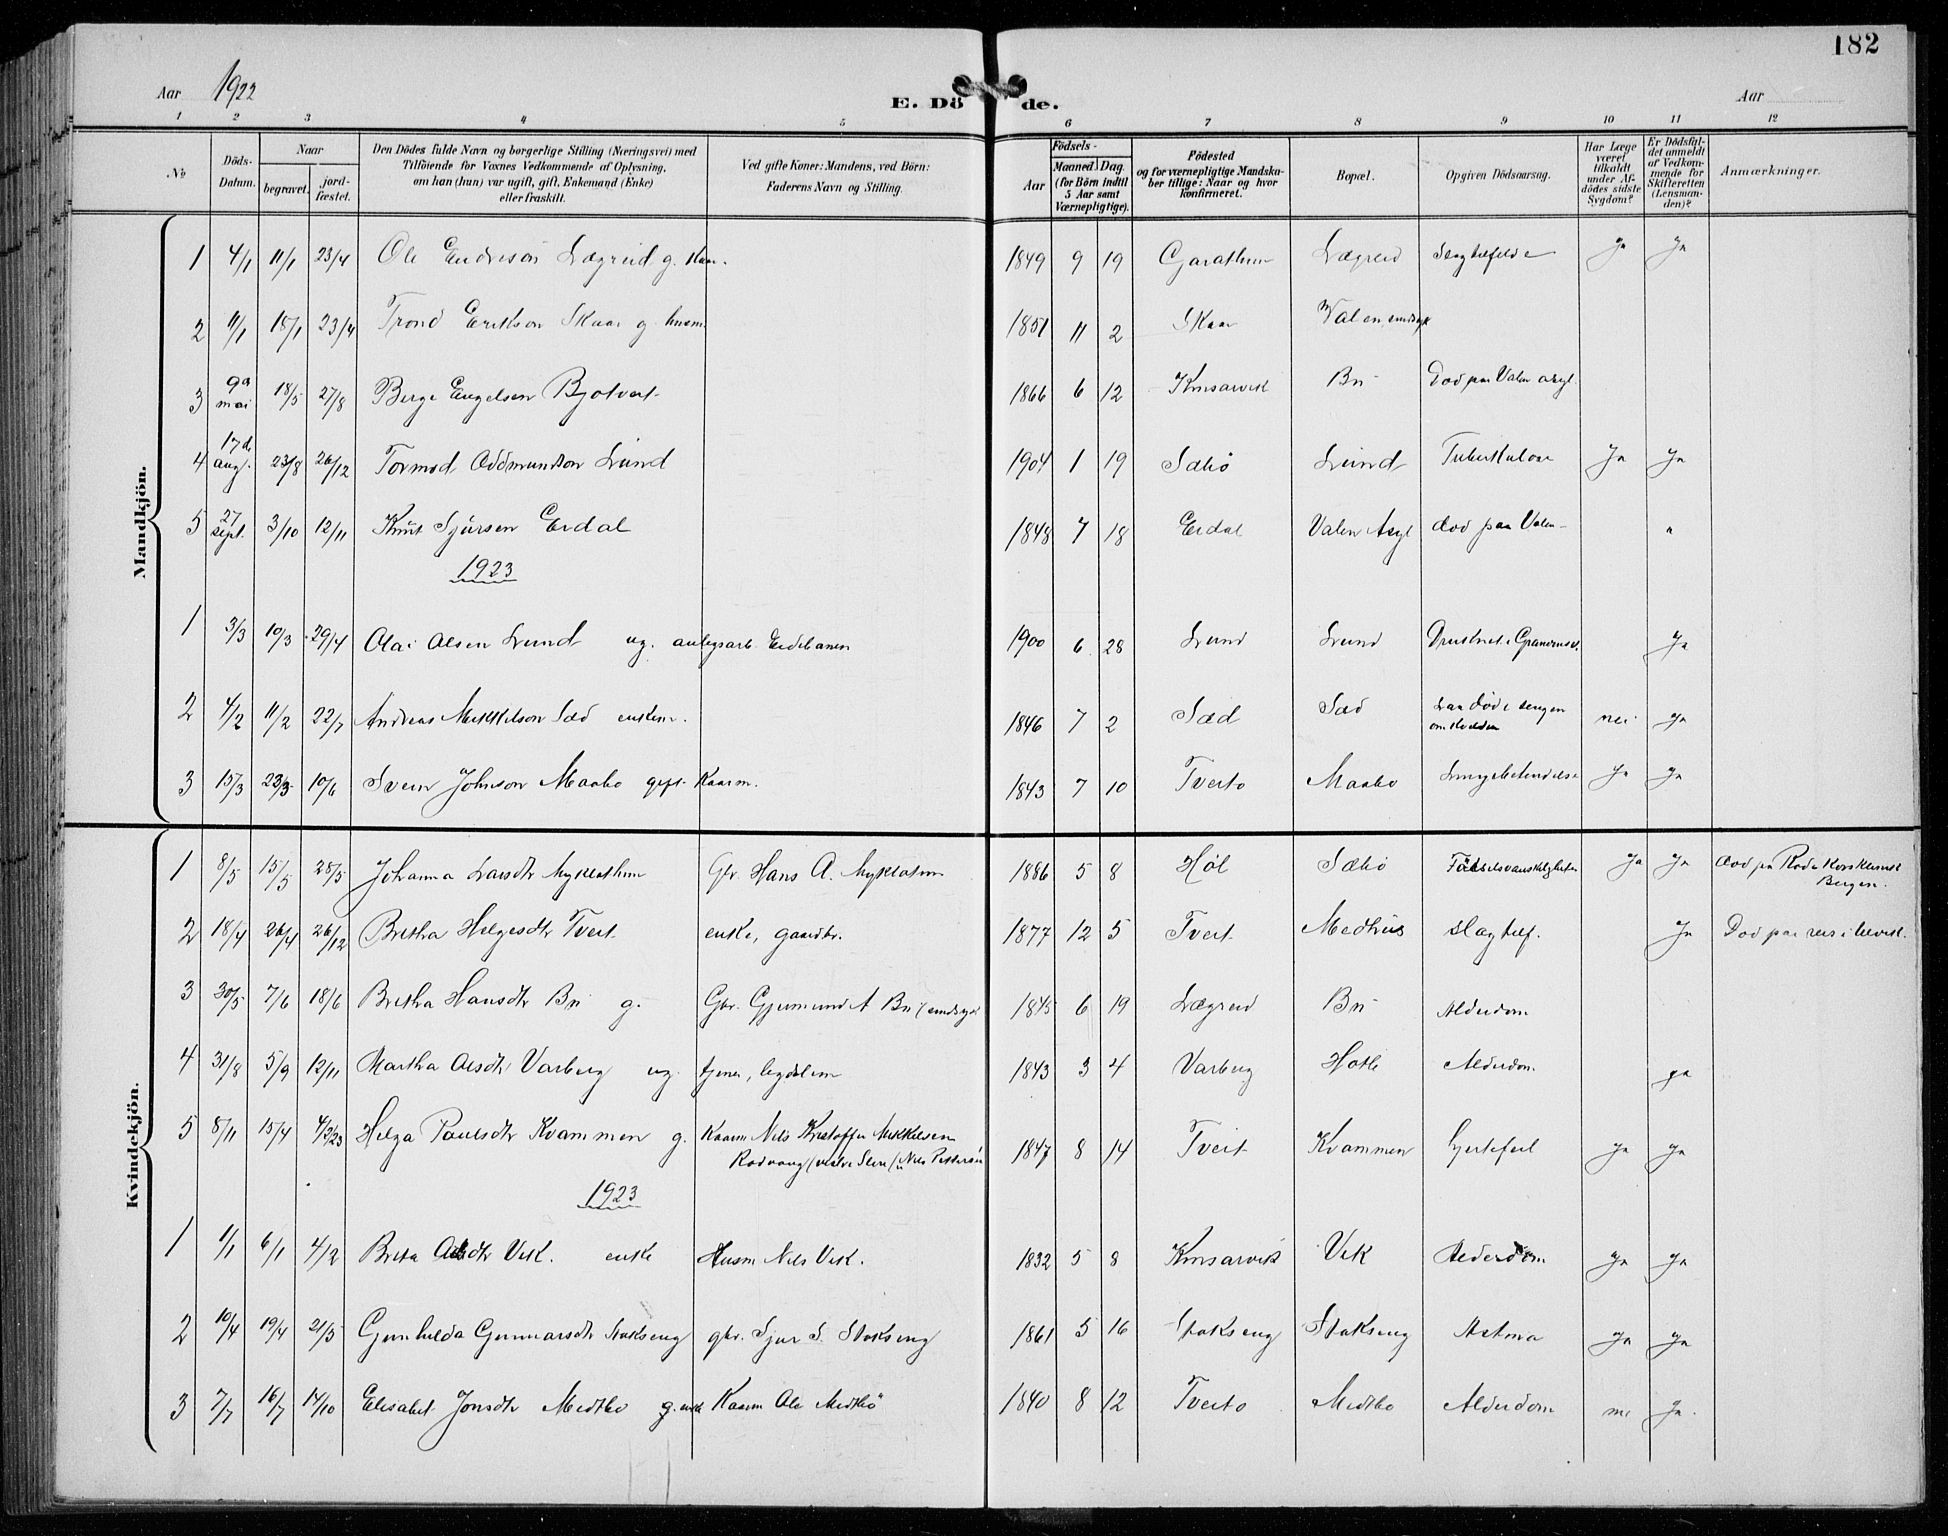 182
Aar 1922
E. Dö de.
Aar
1 2 3 4 5 6 7 8 9 10 11 12
No
Döds-Datum.
Naar
begravet.
jord-fæstet.
Den Dödes fulde Navn og borgerlige Stilling (Næringsvei) med
Tilföiende for Voxnes Vedkommende af Oplysning,
om han (hun) var ugift, gift, Enkemand (Enke)
eller fraskilt.
Ved gifte Koner: Mandens, ved Börn:
Faderens Navn og Stilling.
Födsels-
Aar
Maaned. Dag.
(for Börn indtil
5 Aar samt
Værnepligtige).
Födested
og for værnepligtige Mandska-
ber tillige: Naar og hvor
konfirmeret.
Bopæl.
Opgiven Dödsaarsag.
Har Læge
været
tilkaldt
under Af-
dödes sidste
Sygdom?
Er Dödsfal-
det anmeldt
af Vedkom-
mende for
Skifteretten
(Lensman-
den)?
Anmærkninger.
Mandkjön.
1 4/1 11/1 23/4 Ole Endreson Lægreid g. Kaar. 1849 9 19 Garathun Lægreid Slagtilfelde Ja Ja
2 11/1 18/1 23/4 Trond Erikson Skaar g. husm. 1851 11 2 Skaar Valen sindsyk
3 9a mai 18/5 27/8 Berge Engelsen Bjotveit 1866 6 12 Kinsarvik Bu Død paa Valen asyl
4 17de aug. 23/8 26/12 Tormod Oddmundson Lund 1904 1 19 Sæbö Lund Tuberkulose Ja Ja
5 27 sept. 3/10 12/11 Knut Sjursen Erdal 1848 7 18 Erdal Valen Asyl død paa Valen "
1923
1 3/3 10/3 29/4 Olai Olsen Lund ug. anlegsarb. Eidebanen 1900 6 28 Lund Lund Druknet i Granvinsv. Ja
2 4/2 11/2 22/7 Andreas Mikkelson Sæd enkem. 1846 7 2 Sæd Sæd Laa død i sengen om kvelden nei Ja
3 15/3 23/3 10/6 Svein Johnson Maabø gift Kaarm. 1843 7 10 Tveito Maabø Lungebetendelse Ja Ja
Kvindekjön.
1 8/5 15/5 28/5 Johanna Larsdtr Myklathun Gbr. Hans A. Myklatun 1886 5 8 Høl Sæbö Fødselsvanskeligheter Ja Ja død paa Røde Kors klinik Bergen.
2 18/4 26/4 26/12 Britha Helgesdtr Tveit enke, gaardbr. 1877 12 5 Tveit Medhus slagtilf. Ja Død paa reis i Ulvik.
3 30/5 7/6 18/6 Britha Hansdtr Bu g. Gbr. Gjermund A Bu (sindsyk 1845 6 19 Lægreid Bu Alderdom
4 31/8 5/9 12/11 Martha Olsdtr Varberg ug. tjener, legdslem 1843 3 4 Varberg Hotle Alderdom ja
5 8/11 15/4 4/3/23 Helga Paulsdtr Kvammen g. Kaarm Nils Kristoffer Mikkelsen
Rødvang 1847 8 14 Tveit Kvammen hjertefeil Ja Ja
1923
1 1/1 6/1 4/2 Brita Olsdtr Vik. enke Husm Nils Vik. 1832 5 8 Kinsarvik Vik Alderdom Ja Ja
2 10/4 19/4 21/5 Gunhilda Gunnarsdtr Stokseng gbr. Sjur S. Stokseng 1861 5 16 Stokseng Stokseng Astma Ja Ja
3 7/7 16/7 14/10 Elisabet Jonsdtr Medtbø g. enke Kaarm Ole Medtbö 1840 8 12 Tveito Medtbø Alderdom nei Ja.